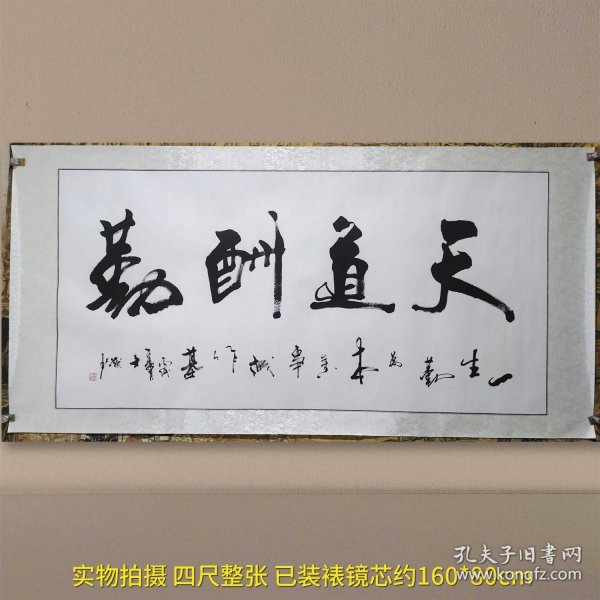 天道酬勤
一生勤为本万事诚作基
孔夫子旧书网
kongfz.com
实物拍摄 四尺整张 已装裱镜芯约160*80cm